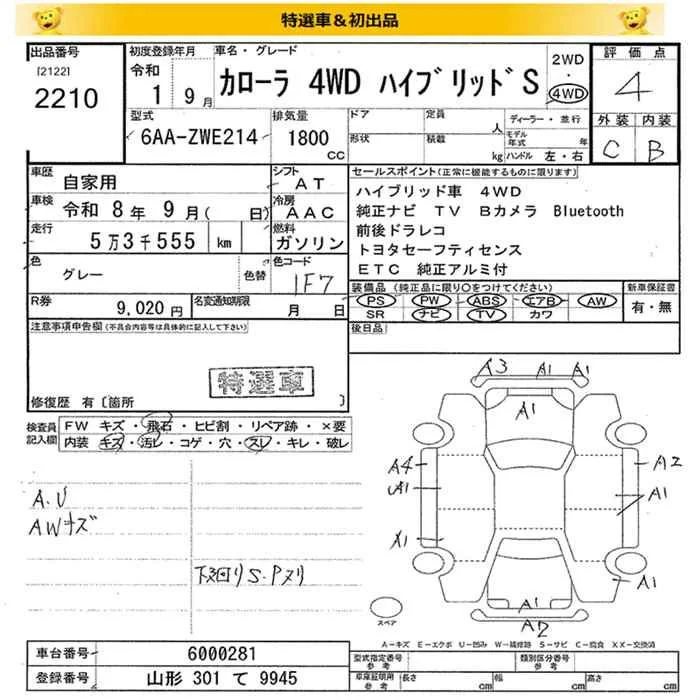 特選車＆初出品
出品番号
[2122]
2210
初度登録年月
令和
1 9月
車名・グレード
カローラ 4WD ハイブリッド S
2WD
・
4WD
評価点
4
外装 内装
C B
型式
6AA-ZWE214
排気量
1800
CC
ドア
形状
定員
人
積載
kg
ディーラー・並行
モデル年式 年
ハンドル 左・右
車歴
自家用
シフト
AT
車検
令和 8年 9月( 日)
冷房
AAC
走行
5万3千555 km
燃料
ガソリン
色
グレー
色替
色コード
1F7
R券
9,020円
名変通知期限
月 日
セールスポイント(正常に機能するものに限ります)
ハイブリッド車 4WD
純正ナビ TV Bカメラ Bluetooth
前後ドラレコ
トヨタセーフティセンス
ETC 純正アルミ付
装備品 (純正品に限り○をつけてください)
PS PW ABS エアB AW
SR ナビ TV カワ
新車保証書
有・無
後日品
注意事項申告欄(不具合内容等は具体的に記入して下さい)
特選車
修復歴 有〔箇所 〕
検査員記入欄
FW キズ・飛石・ヒビ割・リペア跡・×要
内装 キズ・汚レ・コゲ・穴・スレ・キレ・破レ
A.U
AWキズ
下廻りS.Pヌリ
A3 A1 A1
A1
A4 A2
A1 A1
A1
A1
A1
A2
スペア
A-キズ E-エクボ U-凹み W-補修跡 S-サビ C-腐食 XX-交換済
車台番号
6000281
登録番号
山形 301 て 9945
型式指定番号
参考
類別区分番号
参考
車庫証明用
参考
長さ cm
幅 cm
高さ cm